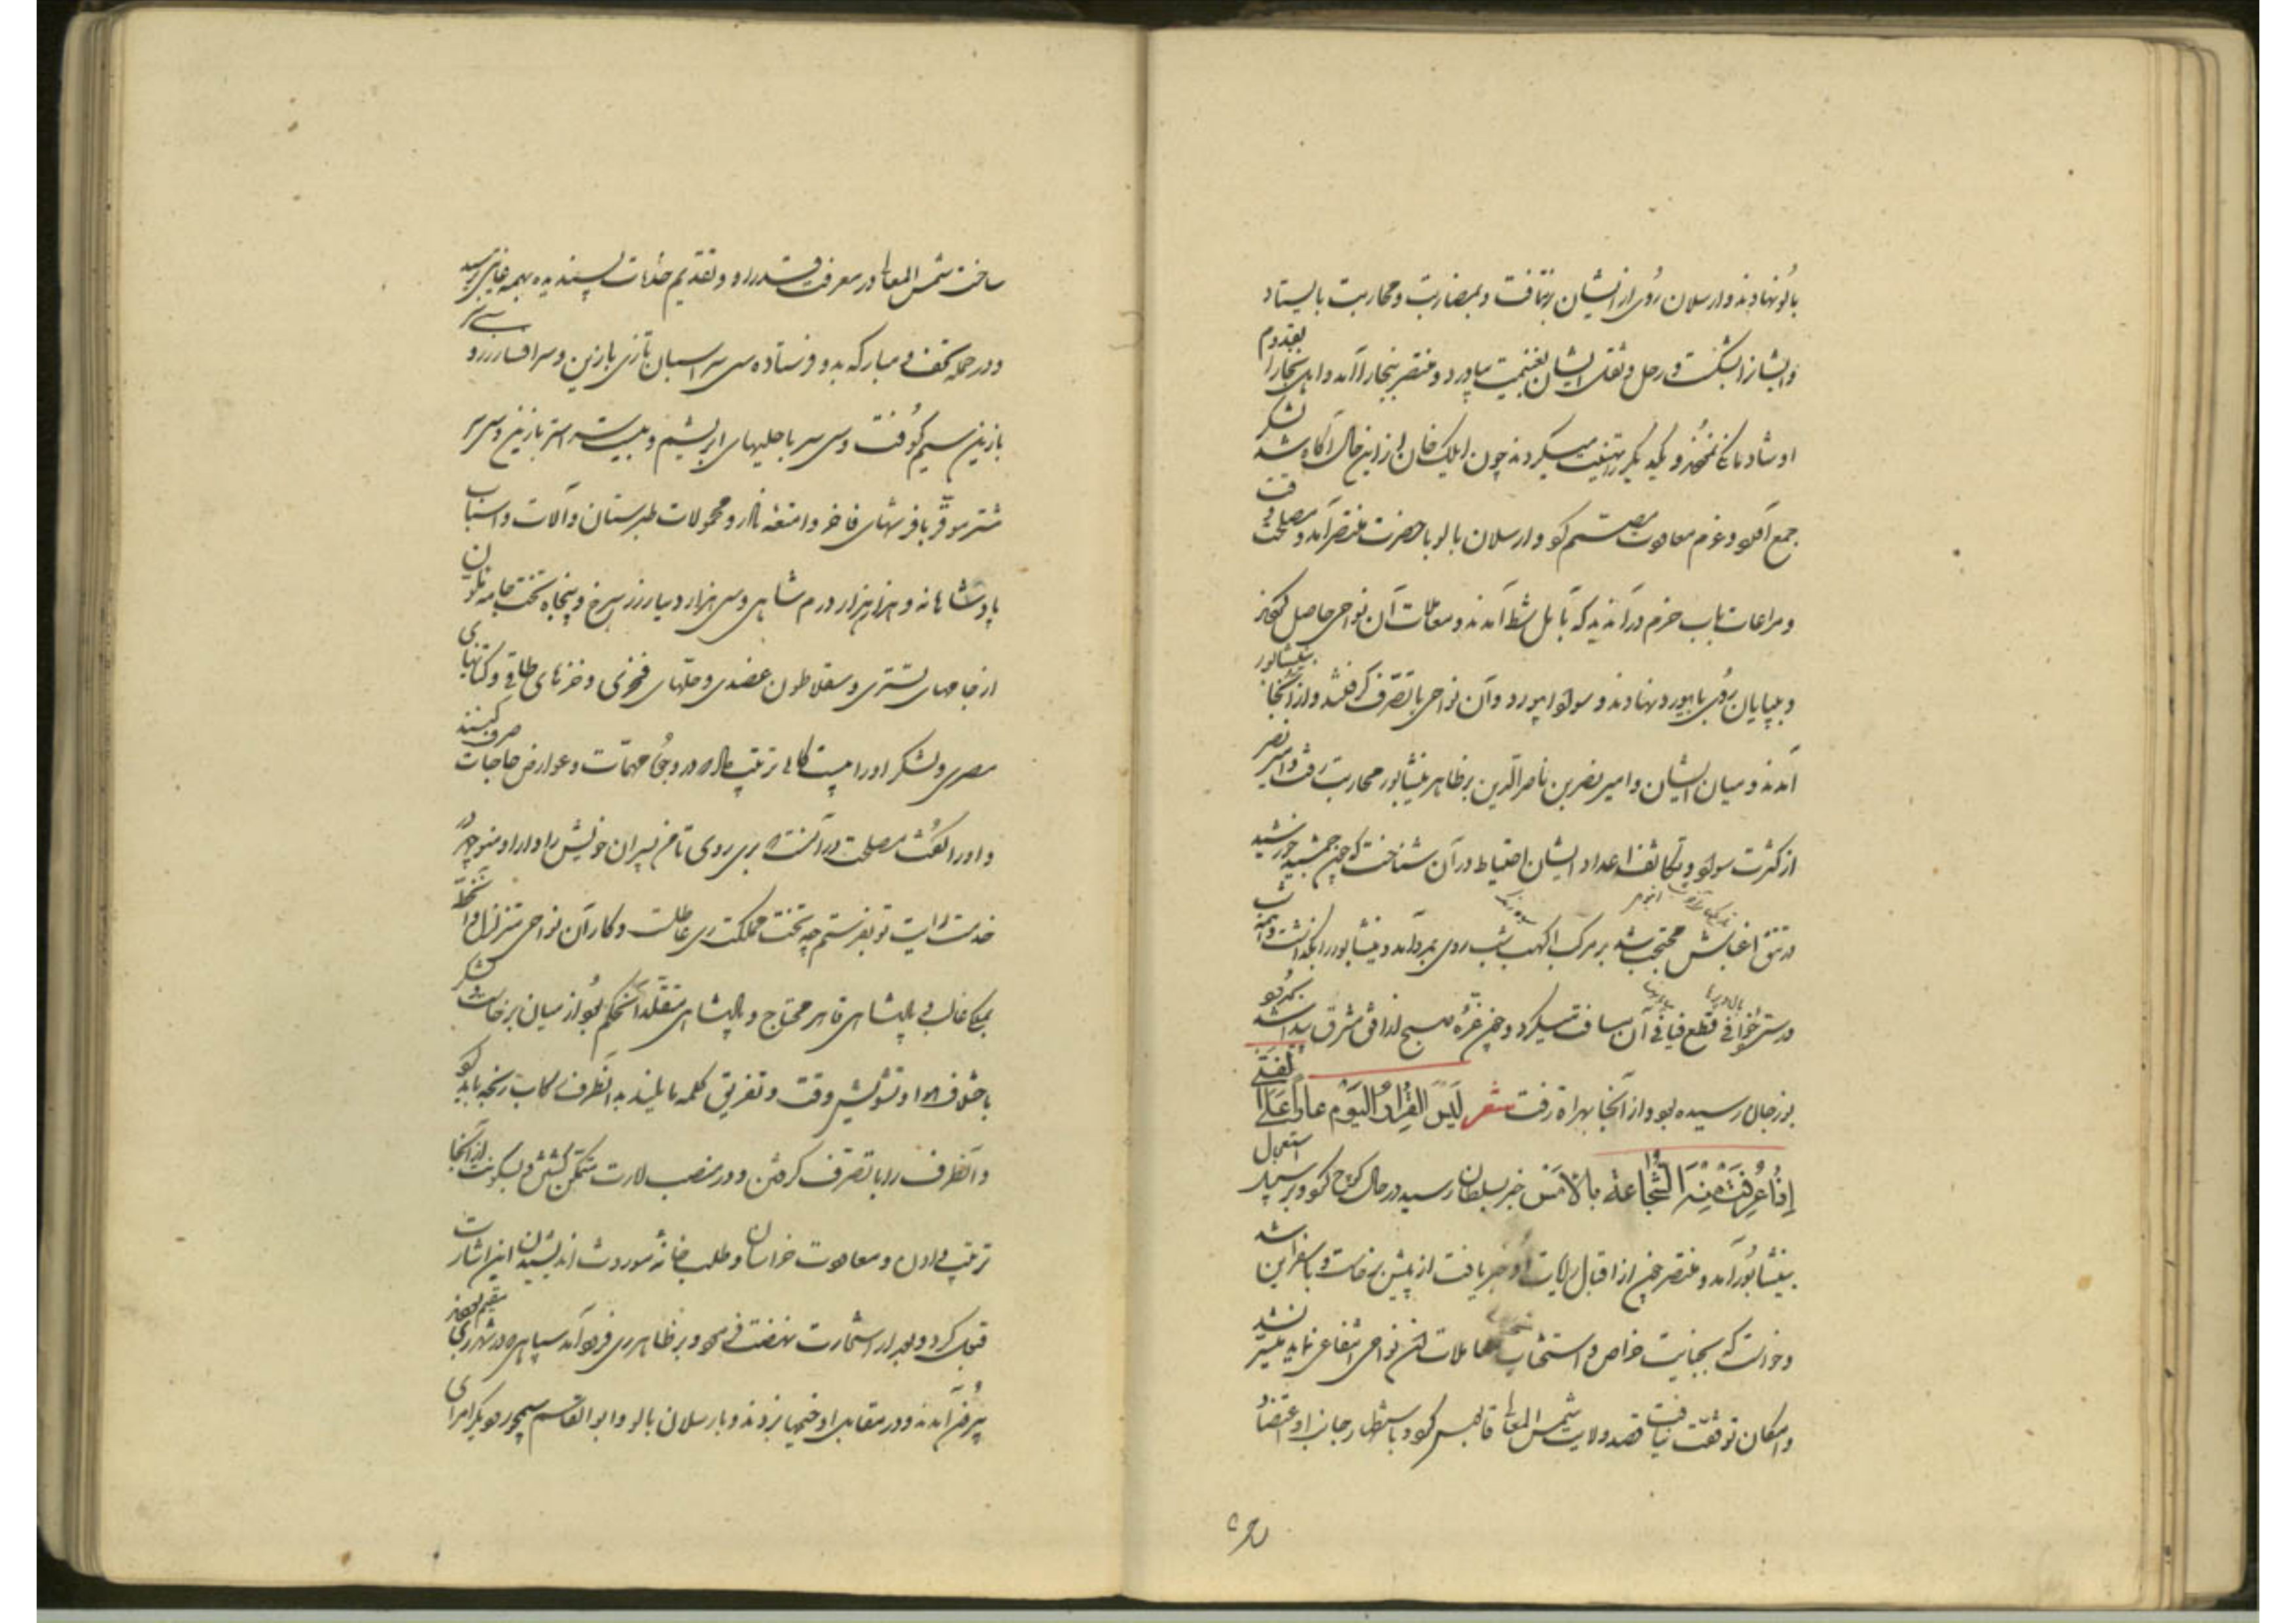 بالو نهادند و ارسلان روی از ایشان برنتافت و بمضاربت و محاربت بایستاد
و ایشانرا بشکست و رحل و ثقل ایشان بغنیمت بیاورد و منتصر ببخارا آمد و اهل بخارا بقدوم
او شادمانی نمودند و یکدیگر را تهنیت میکردند چون ایلک خان از این حال آگاه شد لشکر
جمع آورد و عزم معاودت مصمم کرد و ارسلان بالو با حضرت منتصر آمد و مصلحت وقت
و مراعات باب حزم در آن دیدند که بآمل شط آمدند و معاملات آن نواحی حاصل کردند
و بیابان روی بابیورد نهادند و آن نواحی با تصرف گرفتند و از آنجا بنیشابور
آمدند و میان ایشان و امیر نصر بن ناصرالدین بر ظاهر نیشابور محاربت رفت و امیر نصر
از کثرت سواد و تکاثف اعداد ایشان احتیاط در آن شناخت که چون جمشید خورشید
در تتق اغباش محتجب شد بر مرکب اکهب شب روی براه آورد و نیشابور را بگذاشت و همه شب
در ستر خوافی قطع فیافی آن مسافت میکرد و چون غره صبح از افق مشرق پیدا شد
بوزجان رسیده بود و از آنجا بهراة رفت شعر لَیسَ الفِرارُ الیَوم عاراً عَلَی الفَتَی
إِذا عُرِفَت مِنهُ الشَّجاعَة بالأمسِ خبر بسلطان رسید در حال کوچ کرد و بر سبیل استعجال
بنیشابور آمد و منتصر چون از اقبال رایات او خبر یافت از پیش برخاست و باسفراین شد
و خواست که بجبایت خراج و استحثاث معاملات آن نواحی انتفاعی نماید میسر نشد
و امکان توقف نیافت قصد ولایت شمس المعالی قابوس کرد و باستظهار جانب او اعتضاد
ساخت شمس المعالی در معرفت قدر او و تقدیم خدمات پسندیده بهمه غایتی برسید
و در جمله تحف مبارکه بدو فرستاده سی سر اسبان تازی بازین و سرافسار زر و سی سر
بازین سیم کوفت و سی سر با جلهای ابریشم و بیست سر استر بازین و سی سر
شتر موقر بافرشهای فاخر و امتعه نادر و محمولات طبرستان و آلات و اسباب
پادشاهانه و هزار هزار درم شاهی و سی هزار دینار زر سرخ و پنجاه تخت جامه ملون
از جامهای تستری و سقلاطون عضدی و حلهای فخری و خزهای طاقی و کتانهای
مصری و لشکر او را بیستگانی ترتیب داد تا در وجوه مهمات و عوارض حاجات صرف کنند
و او را گفت مصلحت در آنست که بری روی تا من پسران خویش را دارا و منوچهر در
خدمت رایت تو بفرستم چه تخت مملکت ری عاطل است و کار آن نواحی متزلزل و آن خطه
بملکی غالب و پادشاهی قاهر محتاج و پادشاهی متقلد آن حکم بود از میان برخاست و لشکر
باختلاف اهوا و تشویش وقت و تفریق کلمه مایلند بدانطرف رکاب رنجه باید کرد
و آنطرف را با تصرف گرفتن و در منصب امارت متمکن گشتن و بسکونت از آنجا
ترتیب دادن و معاودت خراسان و طلب خانه موروث اندیشیدن این اشارت
قبول کرد و بعد از استخارت نهضت فرمود و بر ظاهر ری فرود آمد سپاهی که در شهر ری مقیم بودند
بیرون آمدند و در مقابله او خیمها بزدند و بارسلان بالو و ابوالقاسم سیمجور و دیگر امرای